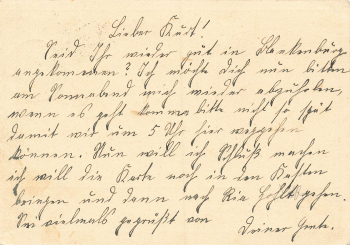 Lieber Kurt!
Seid Ihr wieder gut in Blankenburg
angekommen? Ich möchte Dich nun bitten
am Sonnabend mich wieder abzuholen,
wenn es geht komm bitte nicht so spät
damit wir um 5 Uhr hier weggehen
können. Nun will ich Schluß machen
ich will die Karte noch in den Kasten
bringen und dann nach Ria gehen.
Sei vielmals gegrüßt von
Deiner